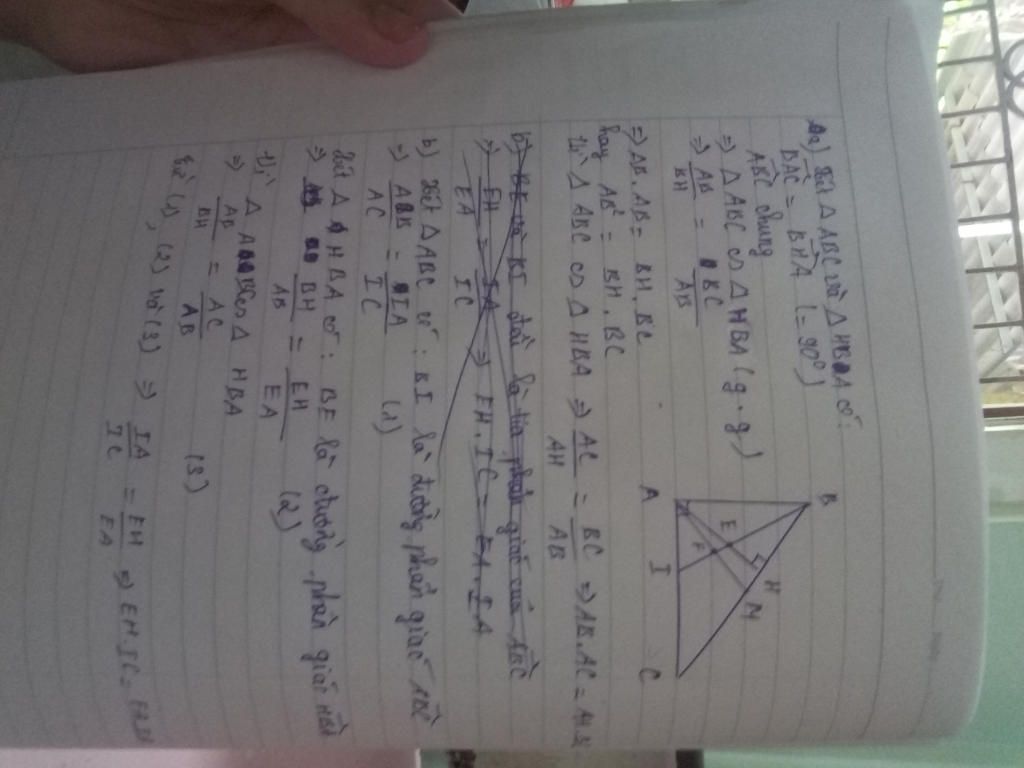 a) Xét Δ ABC và Δ HBA có:
BAC = BHA (= 90°)
ABC chung
⇒ Δ ABC ∽ Δ HBA (g.g)
⇒ AB/BH = BC/AB
⇒ AB. AB = BH. BC
hay AB² = BH. BC
Vì Δ ABC ∽ Δ HBA ⇒ AC/AH = BC/AB ⇒ AB. AC = AH.
B
E
H
M
F
A
I
C
là tia phân giác của ABC
⇒ EH/EA = IA/IC ⇒ EH. IC = EA. IA
b) Xét Δ ABC có: BI là đường phân giác ABC
⇒ AB/AC = IA/IC (1)
Xét Δ HBA có: BE là đường phân giác HBA
⇒ BH/AB = EH/EA (2)
Vì Δ ABC ∽ Δ HBA
⇒ AB/BH = AC/AB (3)
Từ (1), (2) và (3) ⇒ IA/IC = EH/EA ⇒ EH. IC =